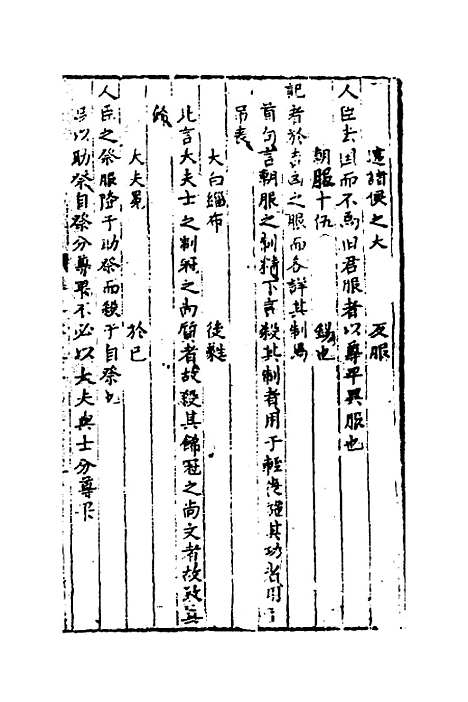 違諸侯之大　反服
人臣去國而不為旧君服者以尊卑異服也
朝服十伍　緦也
記者於吉凶之服而各詳其制焉
首句言朝服之制精下言殺其制者用于輕喪殺其功者用于
吊喪
大白緇布　後蕤
此言大夫士之制冠之尚質者故殺其飾冠之尚文者故致其
飾
大夫冕　於已
人臣之祭服隆于助祭而殺于自祭也
以助祭自祭分尊卑不必以大夫與士分尊卑